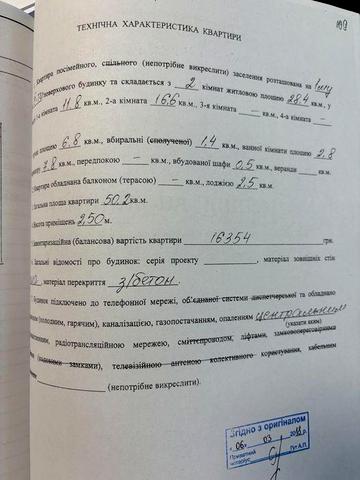 109
ТЕХНІЧНА ХАРАКТЕРИСТИКА КВАРТИРИ
Квартира посімейного, спільного (непотрібне викреслити) заселення розташована на
поверхового будинку та складається з 2 кімнат житловою площею 28.4 кв.м, у
1-а кімната 11.8 кв.м., 2-а кімната 16.6 кв.м., 3-я кімната — кв.м., 4-а кімната —
площею 6.8 кв.м., вбиральні (сполученої) 1,4 кв.м., ванної кімнати площею 2,8
7.8 кв.м., передпокою — кв.м., вбудованої шафи 0,5 кв.м., веранди кв.м.
Квартира обладнана балконом (терасою) — кв.м., лоджією 2.5 кв.м.
Загальна площа квартири 50,2 кв.м.
Висота приміщень 2,50 м.
Інвентаризаційна (балансова) вартість квартири 16354 грн.
Загальні відомості про будинок: серія проекту , матеріал зовнішніх стін
, матеріал перекриття з/бетон.
Будинок підключено до телефонної мережі, об'єднаної системи диспетчерської та обладнано
(холодним, гарячим), каналізацією, газопостачанням, опаленням центральним
(указати яким)
, радіотрансляційною мережею, сміттєпроводом, ліфтами, замковопереговорними
(кодовими замками), телевізійною антеною колективного користування, кабельним
(непотрібне викреслити).
Згідно з оригіналом
«06» 03 р.
Приватний
нотаріус